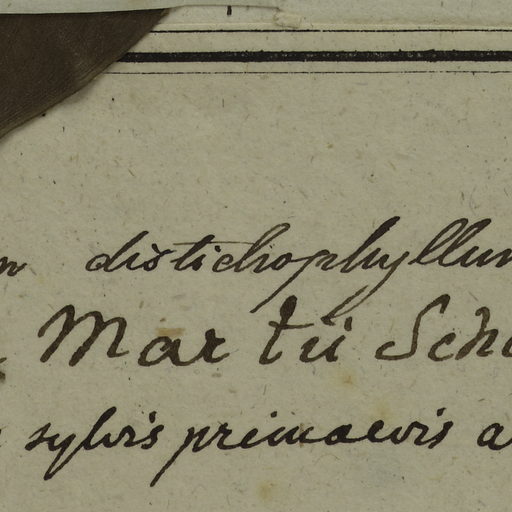 distichophyllum
Martii Sch
sylvis primaevis a